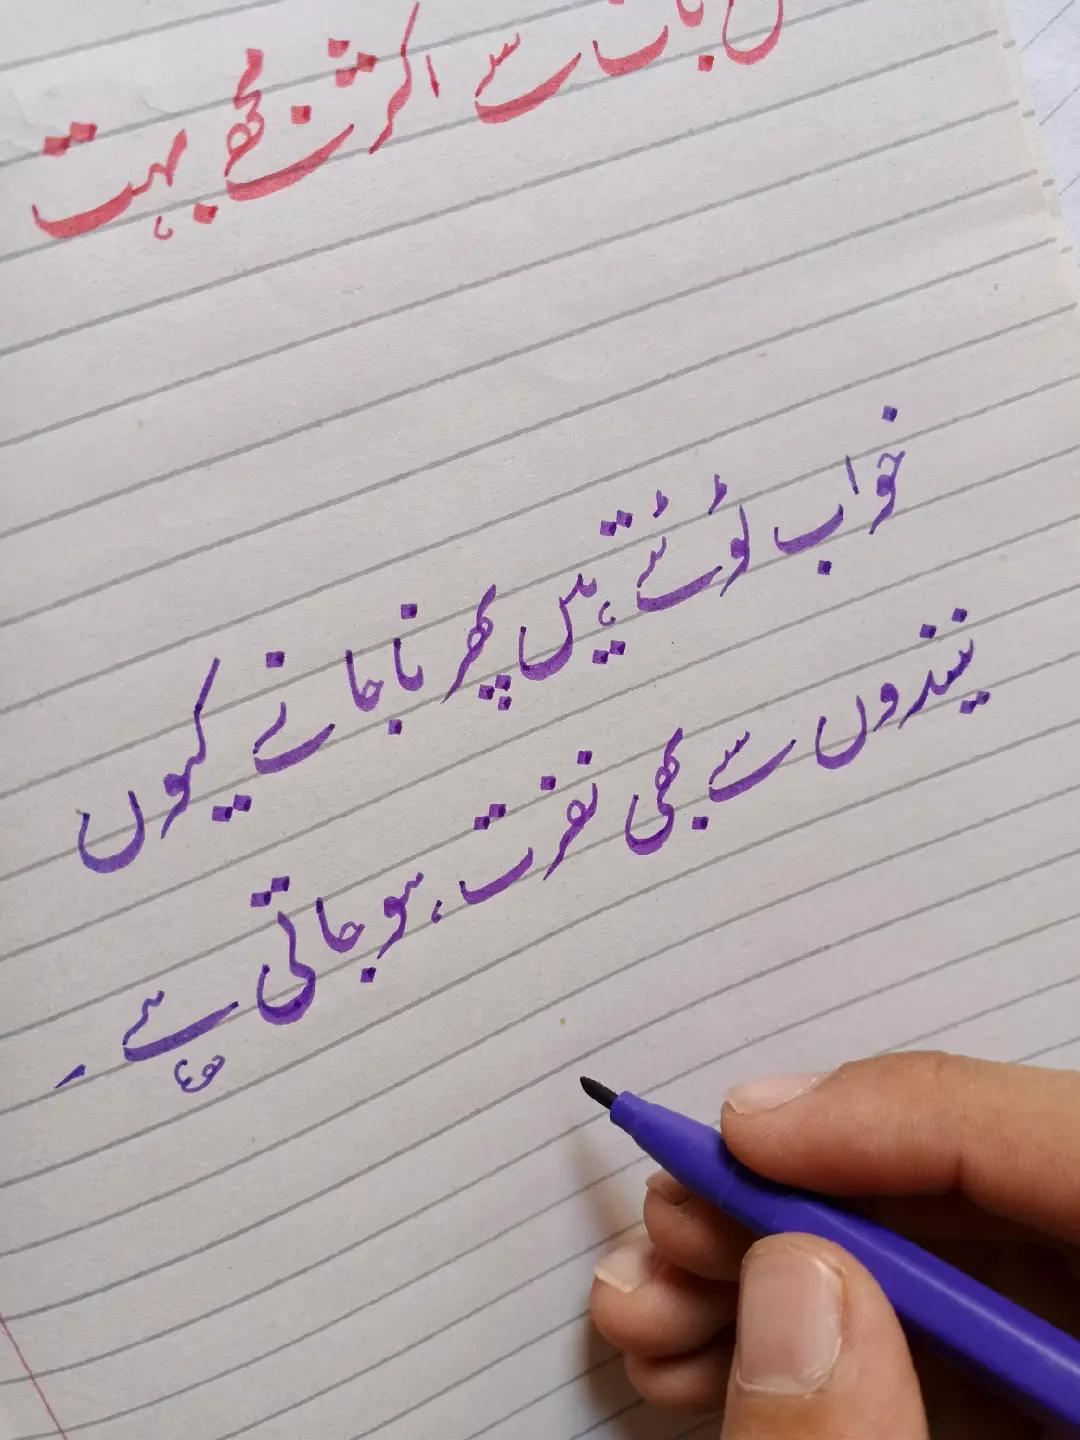 بات سے اکثر مجھے بہت
خواب ٹوٹتے ہیں پھر نا جانے کیوں
نیندوں سے بھی نفرت ہو جاتی ہے ۔